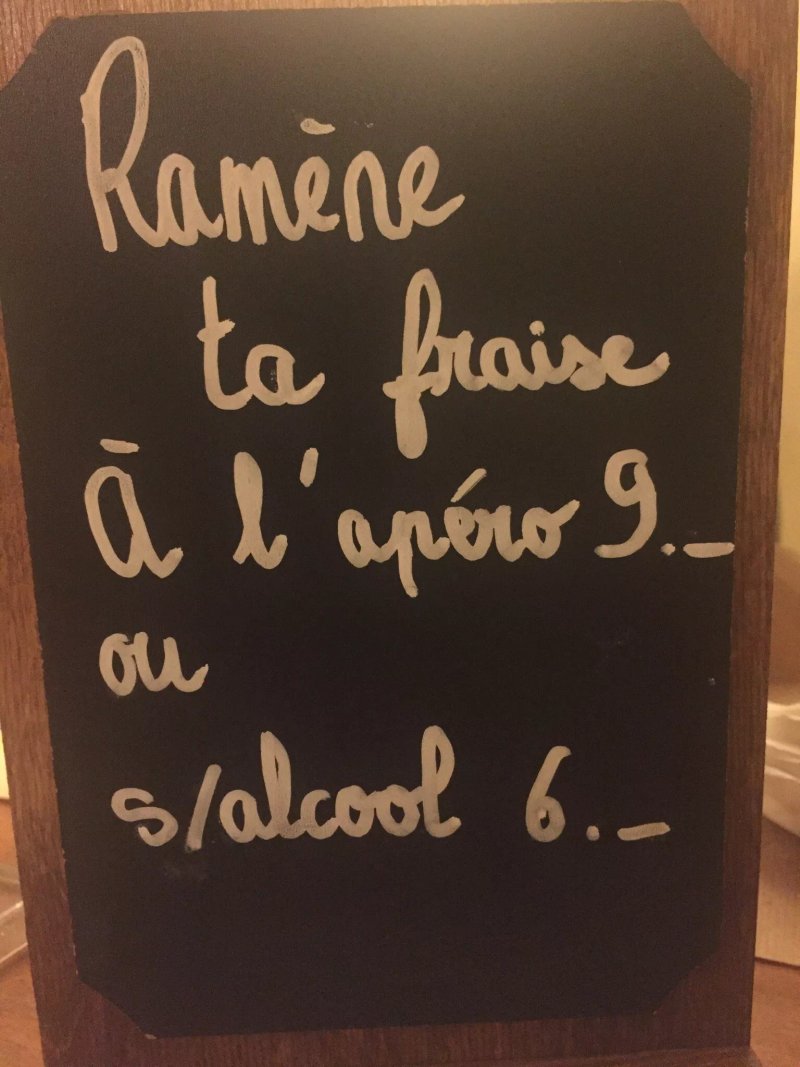 Ramène
ta fraise
À l'apéro 9.–
ou
s/alcool 6.–